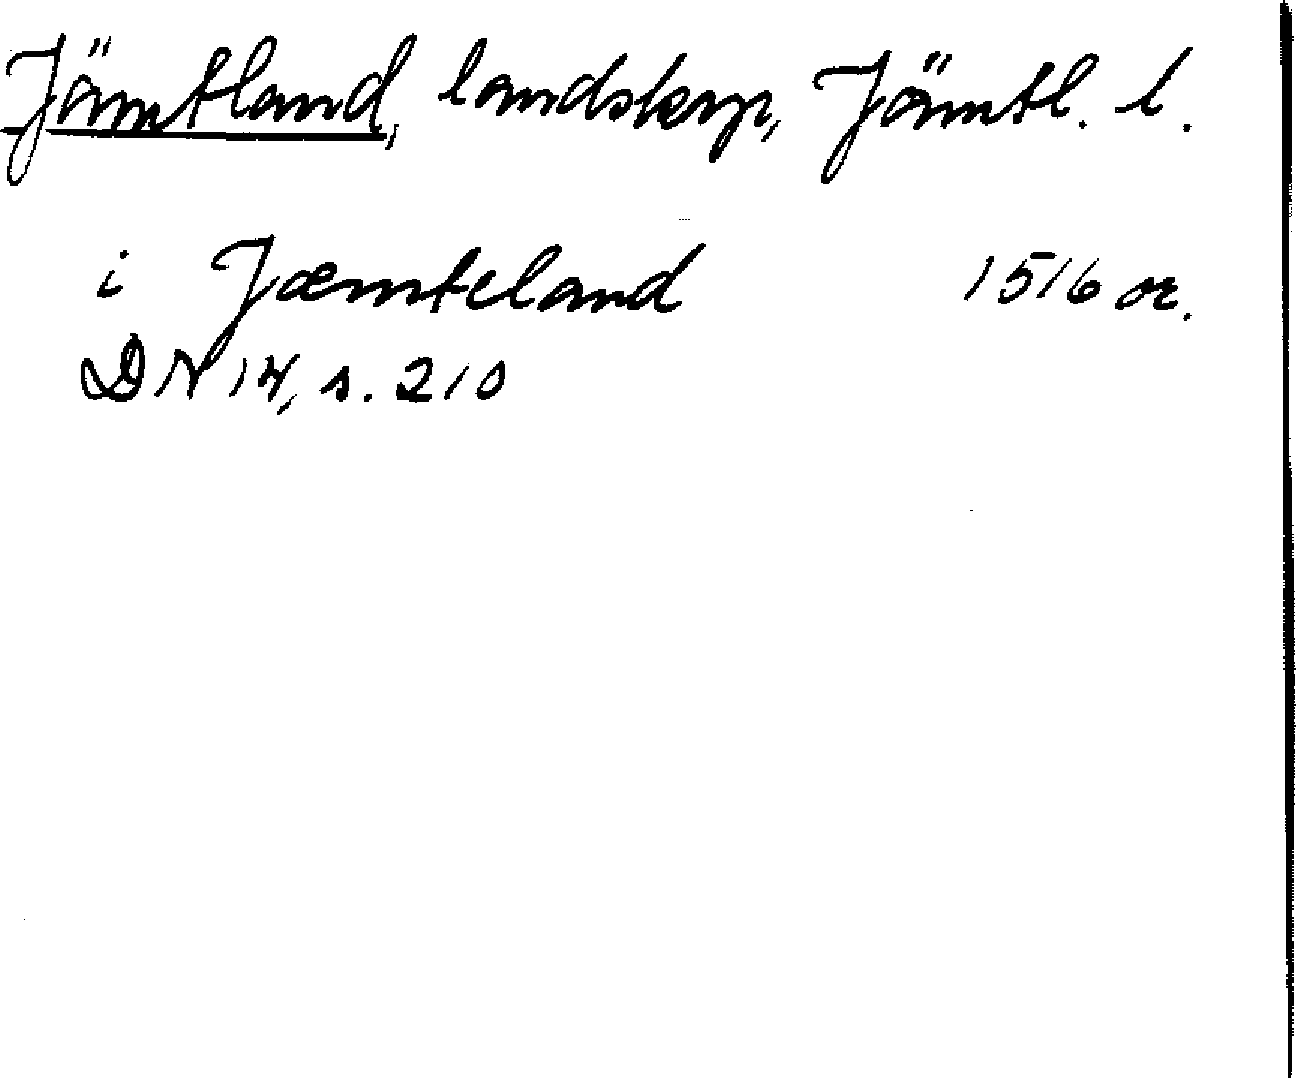 Jämtland, landskap, Jämtl. l.
i Jæmteland 1516 or.
DN 14, s. 210